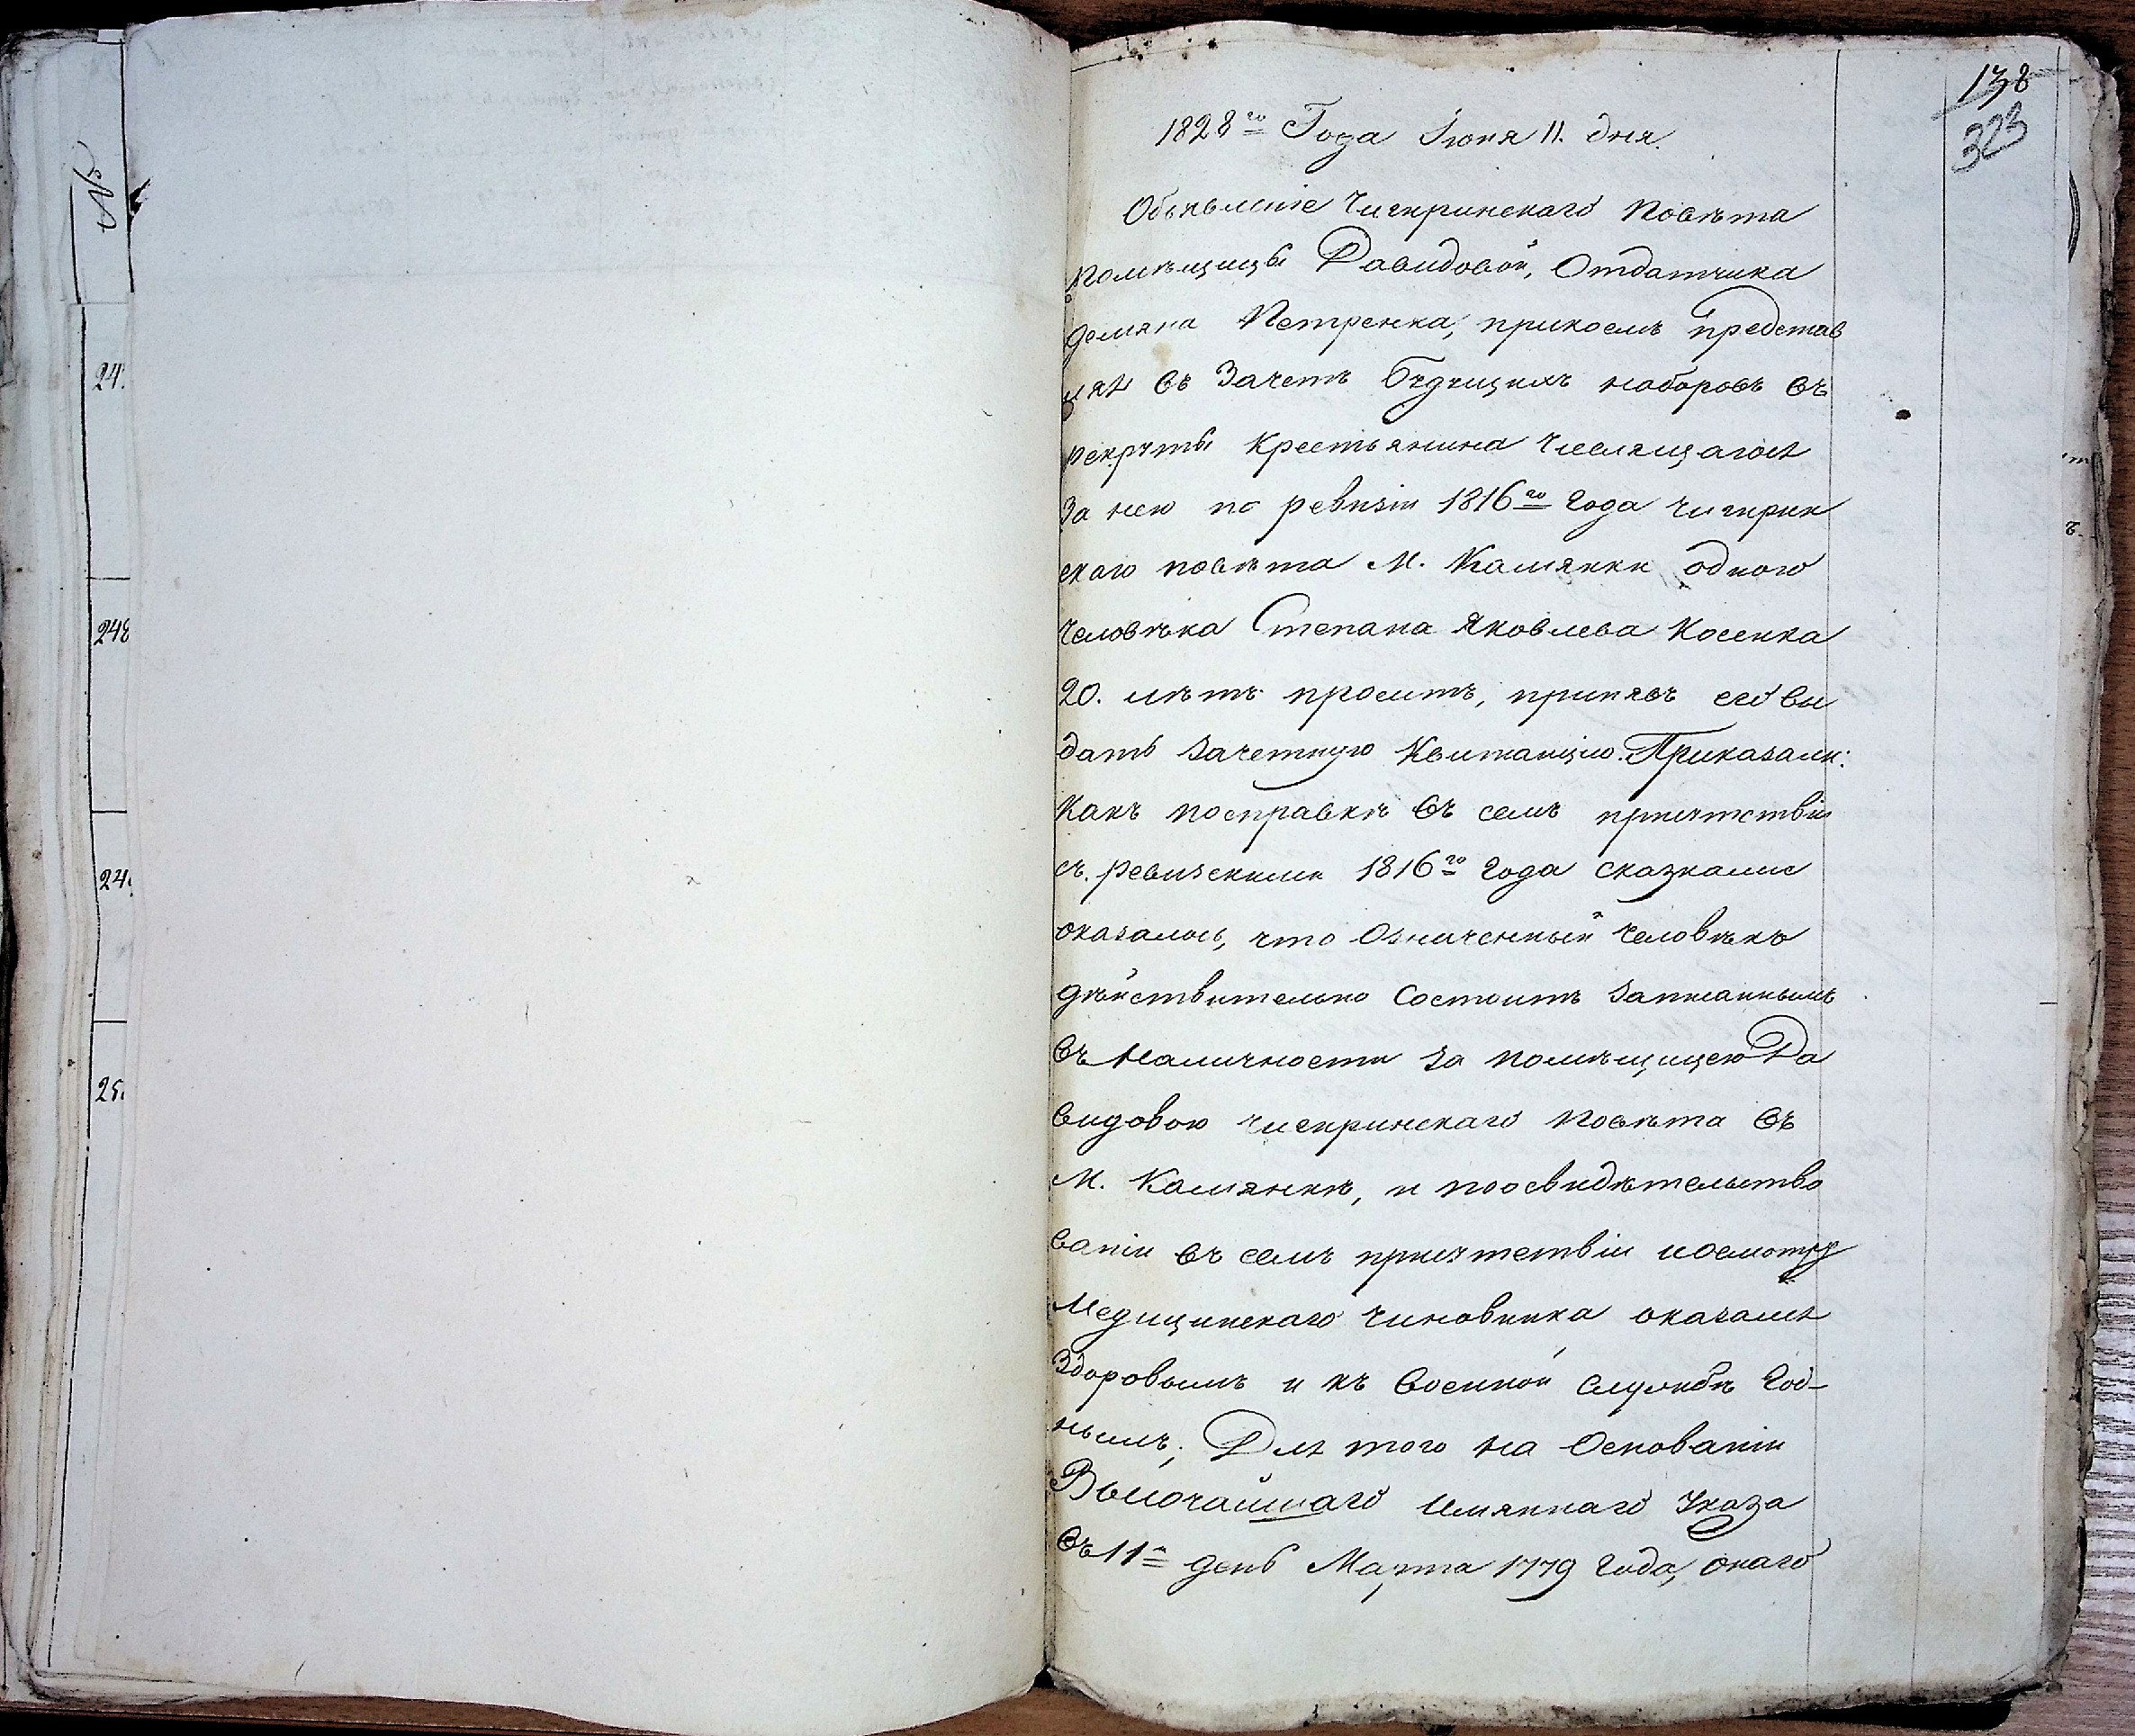 138
323
№
24
248
24
25
1828го Года Іюня 11. дня.
Объявленіе Чигиринскаго Повѣта
помѣщицы Давидовой, Отдатчика
Демяна Петренка, прикоемъ представ
ляя въ Зачетъ будущихъ наборовъ въ
рекруты Крестьянина числящагося
За нею по ревизіи 1816го Года чигирин
скаго повѣта М. Камянки одного
человѣка Степана Яковлева Косенка
20. лѣтъ проситъ, принявъ его вы
дать Зачетную Квитанцію. Приказали:
Какъ посправкѣ въ семъ присутствіи
съ. ревизскими 1816го Года сказками
оказалось, что Означенный человѣкъ
дѣйствительно Состоитъ Записаннымъ
въ Наличности За помѣщицею Да
видовою чигиринскаго повѣта въ
М. Камянкѣ, и поосвидѣтельство
ваніи въ семъ присутствіи иосмотру
Медицинскаго чиновника оказался
Здоровымъ и къ военной службѣ Год-
нымъ; Для того на Основаніи
Высочайшаго Имяннаго указа
въ 11й день Марта 1779 Года, онаго